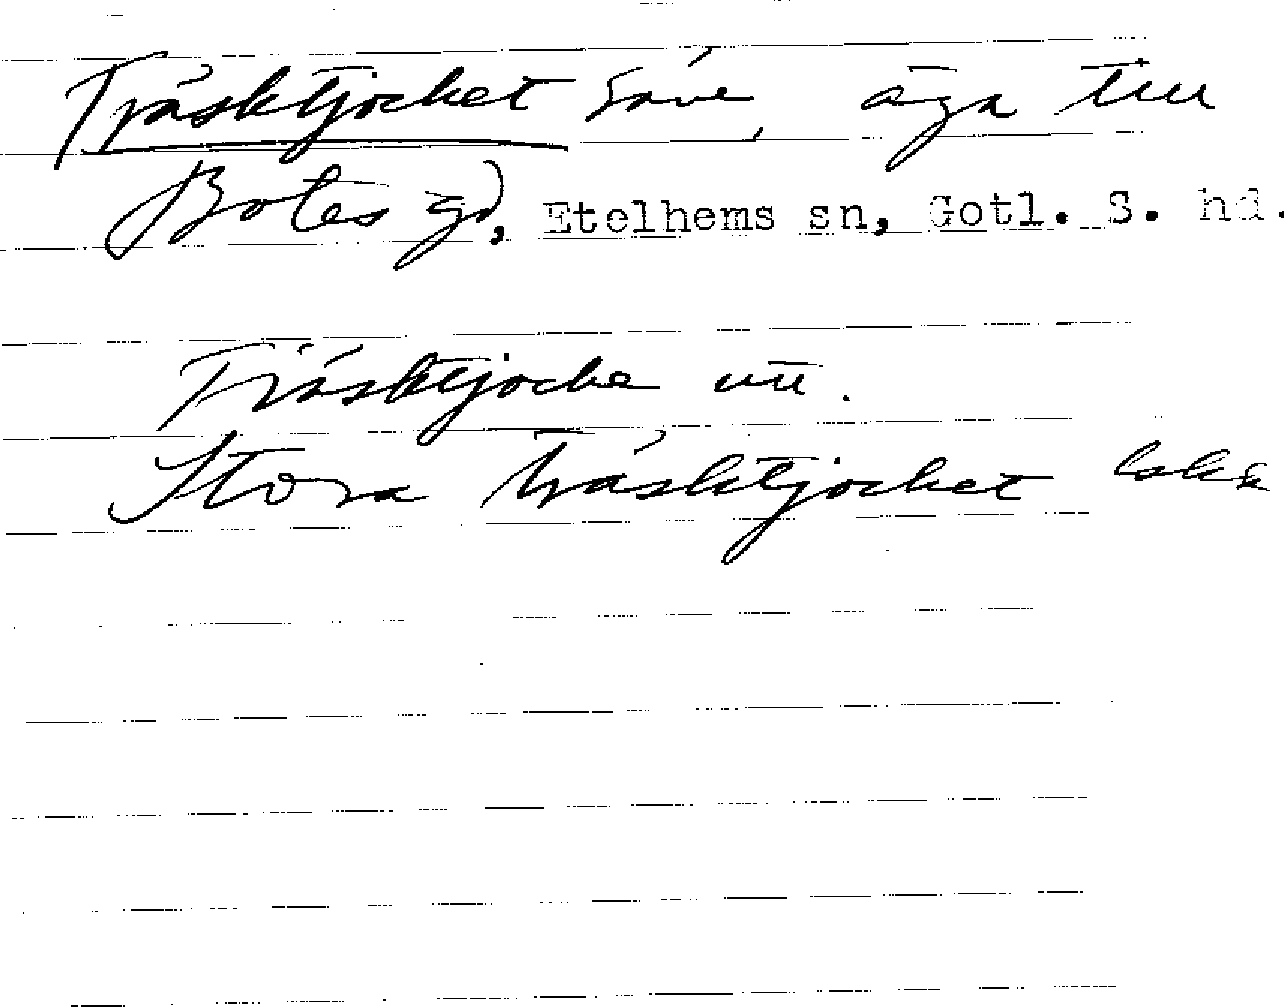 Träsktjocket Säve, äga till
Botes gd, Etelhems sn, Gotl. S. hd.
Träsktjocke utt.
Stora träsktjocket